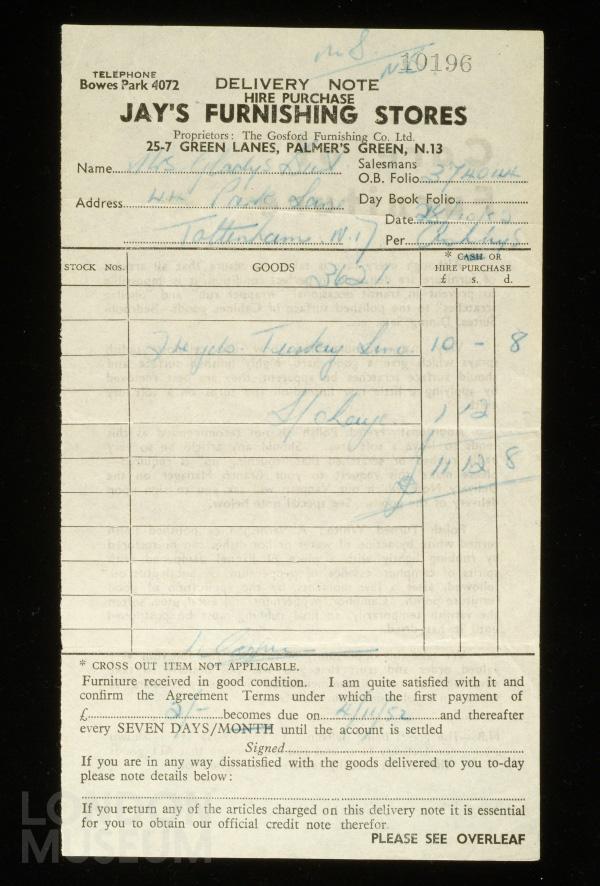 10196
TELEPHONE
Bowes Park 4072
DELIVERY NOTE
HIRE PURCHASE
JAY'S FURNISHING STORES
Proprietors: The Gosford Furnishing Co. Ltd.
25-7 GREEN LANES, PALMER'S GREEN, N.13
Name Mrs
Salesmans
O.B. Folio 374044
Address 44 Park Lane
Day Book Folio
Date 28/10/52
Tottenham N.17
Per
STOCK Nos. GOODS * CASH OR
HIRE PURCHASE
£ s. d.
3621
yds. Lino. 10 - 8
S/charge 1 12
11 12 8
* CROSS OUT ITEM NOT APPLICABLE.
Furniture received in good condition. I am quite satisfied with it and
confirm the Agreement Terms under which the first payment of
£ 2/- becomes due on 4/11/52 and thereafter
every SEVEN DAYS/MONTH until the account is settled
Signed
If you are in any way dissatisfied with the goods delivered to you to-day
please note details below:
If you return any of the articles charged on this delivery note it is essential
for you to obtain our official credit note therefor.
PLEASE SEE OVERLEAF
LONDON
MUSEUM